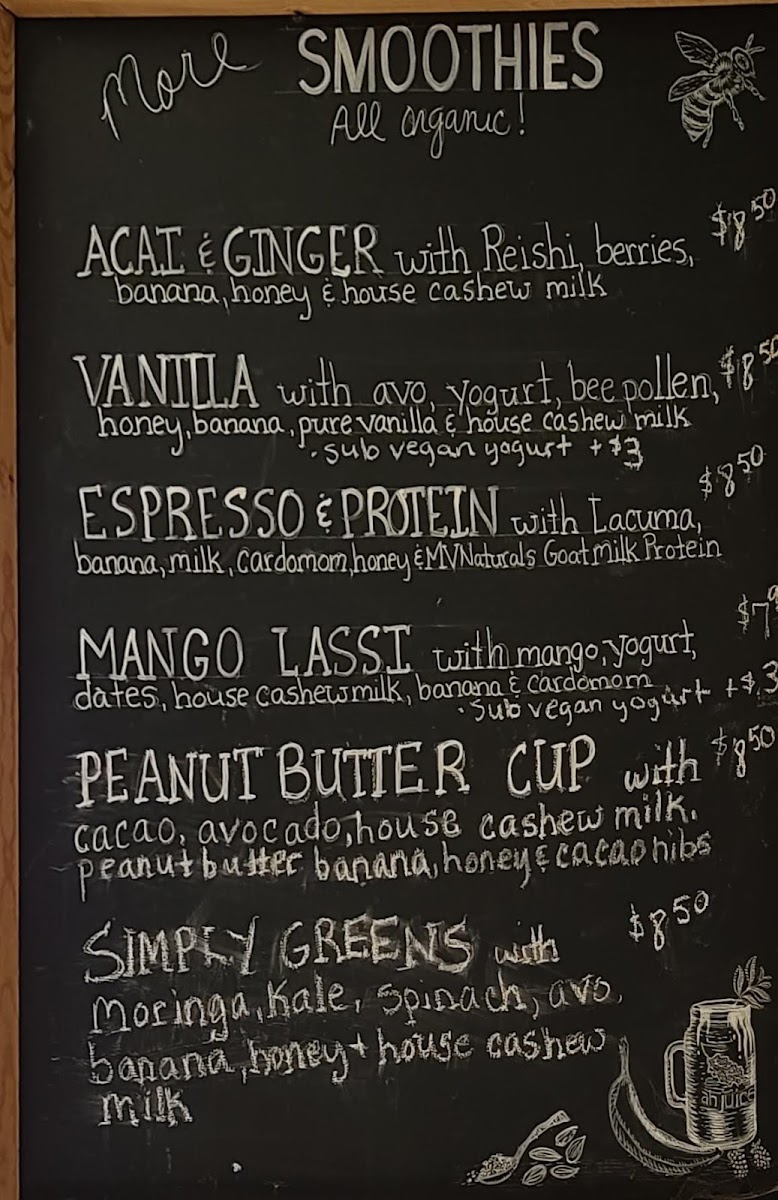 More SMOOTHIES
All organic!
ACAI & GINGER with Reishi, berries, $8.50
banana, honey & house cashew milk
VANILLA with avo, yogurt, bee pollen, $8.50
honey, banana, pure vanilla & house cashew milk
· sub vegan yogurt + $3
ESPRESSO & PROTEIN with Lacuma, $8.50
banana, milk, cardomom, honey & MVNaturals Goat Milk Protein
MANGO LASSI with mango, yogurt, $7
dates, house cashew milk, banana & cardomom
· sub vegan yogurt + $.3
PEANUT BUTTER CUP with $8.50
cacao, avocado, house cashew milk.
peanut butter banana, honey & cacao nibs
SIMPLY GREENS with $8.50
Moringa, Kale, spinach, avo,
banana, honey + house cashew
milk
ah juice